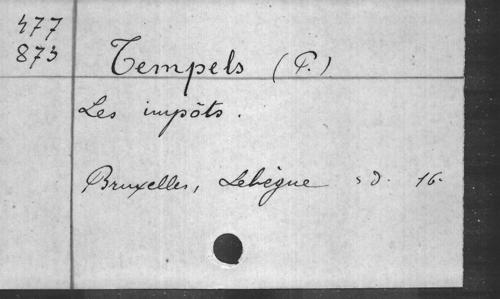 477
873
Tempels (P.)
Les impôts.
Bruxelles, Lebègue s.d. 16.